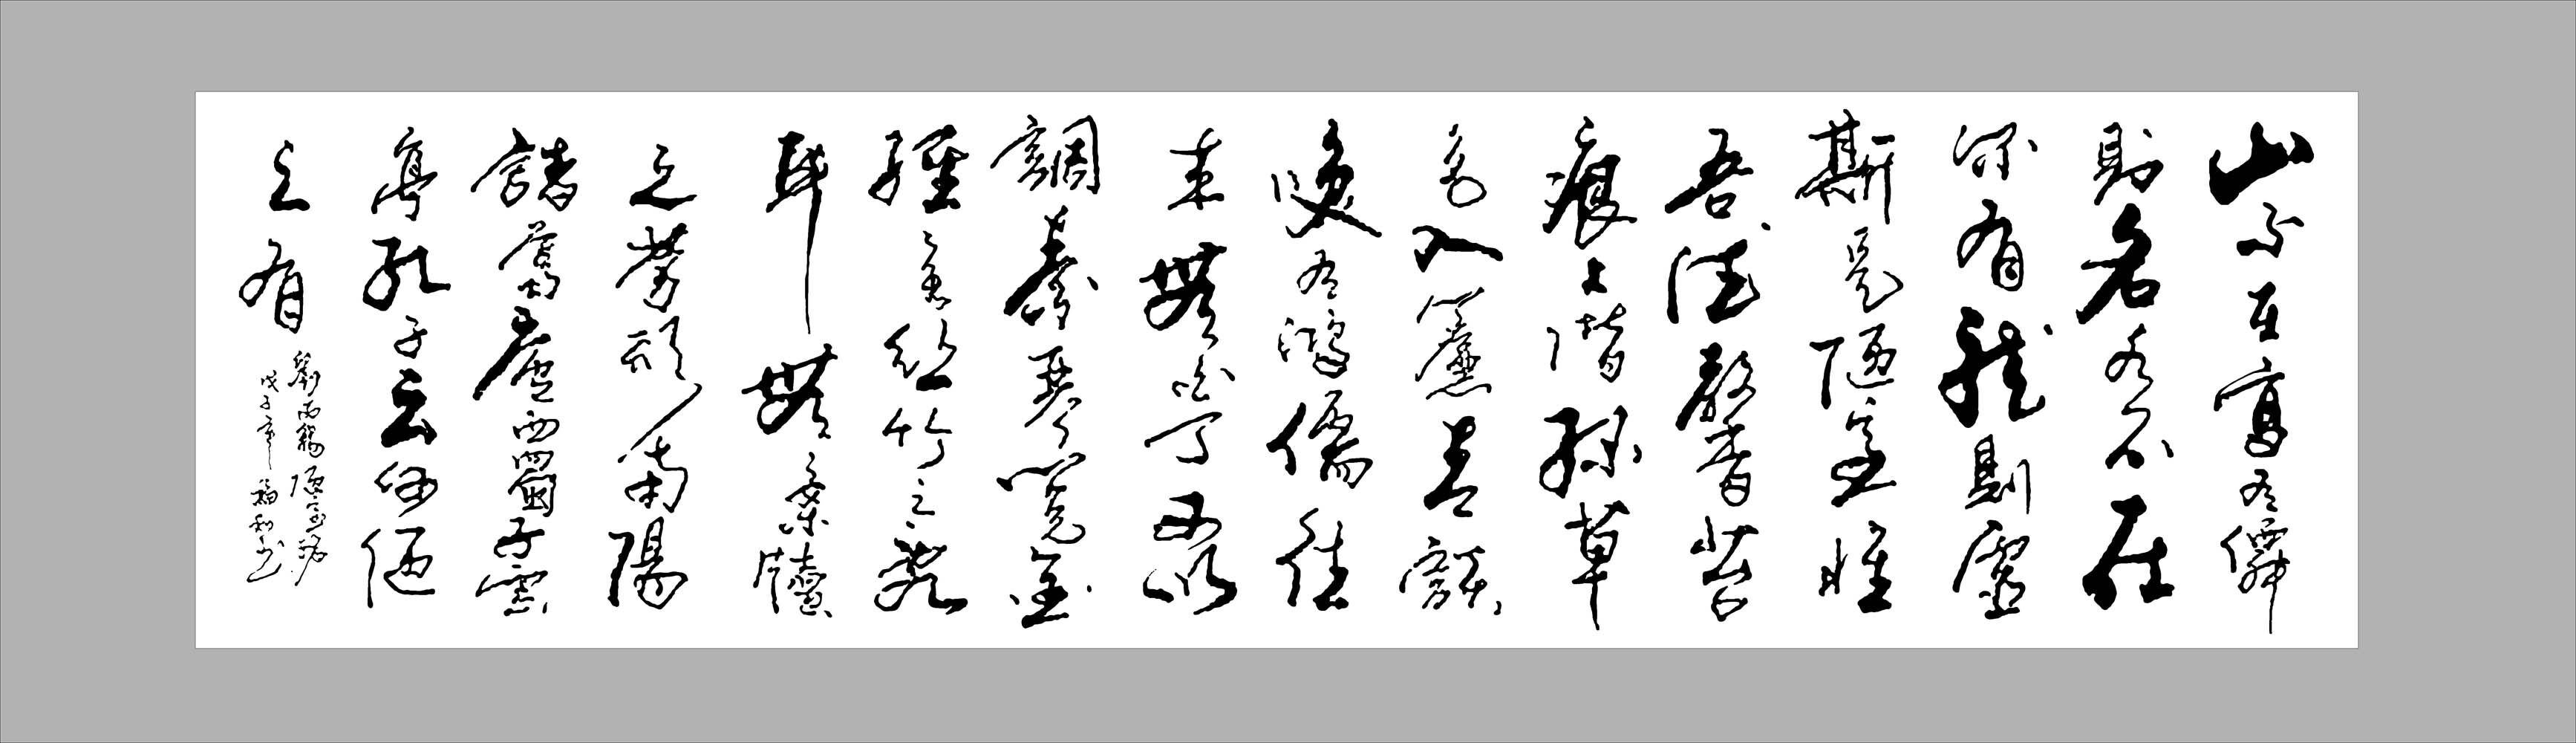 山不在高有僊
則名水不在
深有龍則靈
斯是陋室惟
吾德馨苔
痕上階綠草
色入簾青談
咲有鴻儒往
來無白丁可以
調素琴閱金
經無絲竹之亂
耳無案牘
之勞形南陽
諸葛廬西蜀子雲
亭孔子云何陋
之有
劉禹錫陋室銘
戊子年福和書